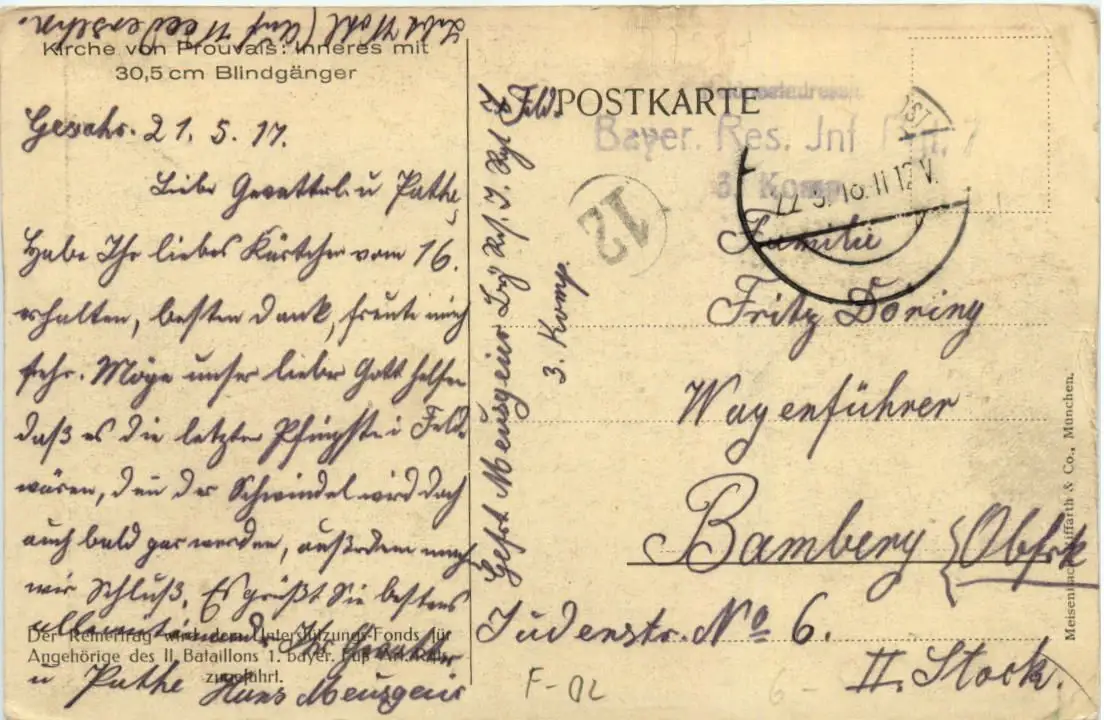 Kirche von Prouvais: Inneres mit
30,5 cm Blindgänger
21. 5. 17.
Liebe Gevattel. u Pathe
Habe Ihr liebes Kärtchen vom 16.
erhalten, besten Dank, freute mich
sehr. Möge unser lieber Gott helfen
daß es die letzten Pfingsten i Felde
wären, den der Schwindel wird doch
auch bald gar werden, außerdem machen
wir Schluß. Es grüßt Sie bestens
u Pathe Hans Meusgeier
Der Reinertrag wird dem Unterstützungs-Fonds für
Angehörige des II. Bataillons 1. bayer. Fuß-Art.-Rgts.
zugeführt.
Lebt Wohl (auf Wiedersehn.
Gefrt Meusgeier Bay Res. I. Rgt
3. Komp.
POSTKARTE
Bayer. Res. Inf. 7
3. Komp.
12
Familie
Fritz Döring
Wagenführer
Bamberg (Obfrk
Judenstr. No 6.
II. Stock.
Meisenbach Riffarth & Co., München.
F-02
6-